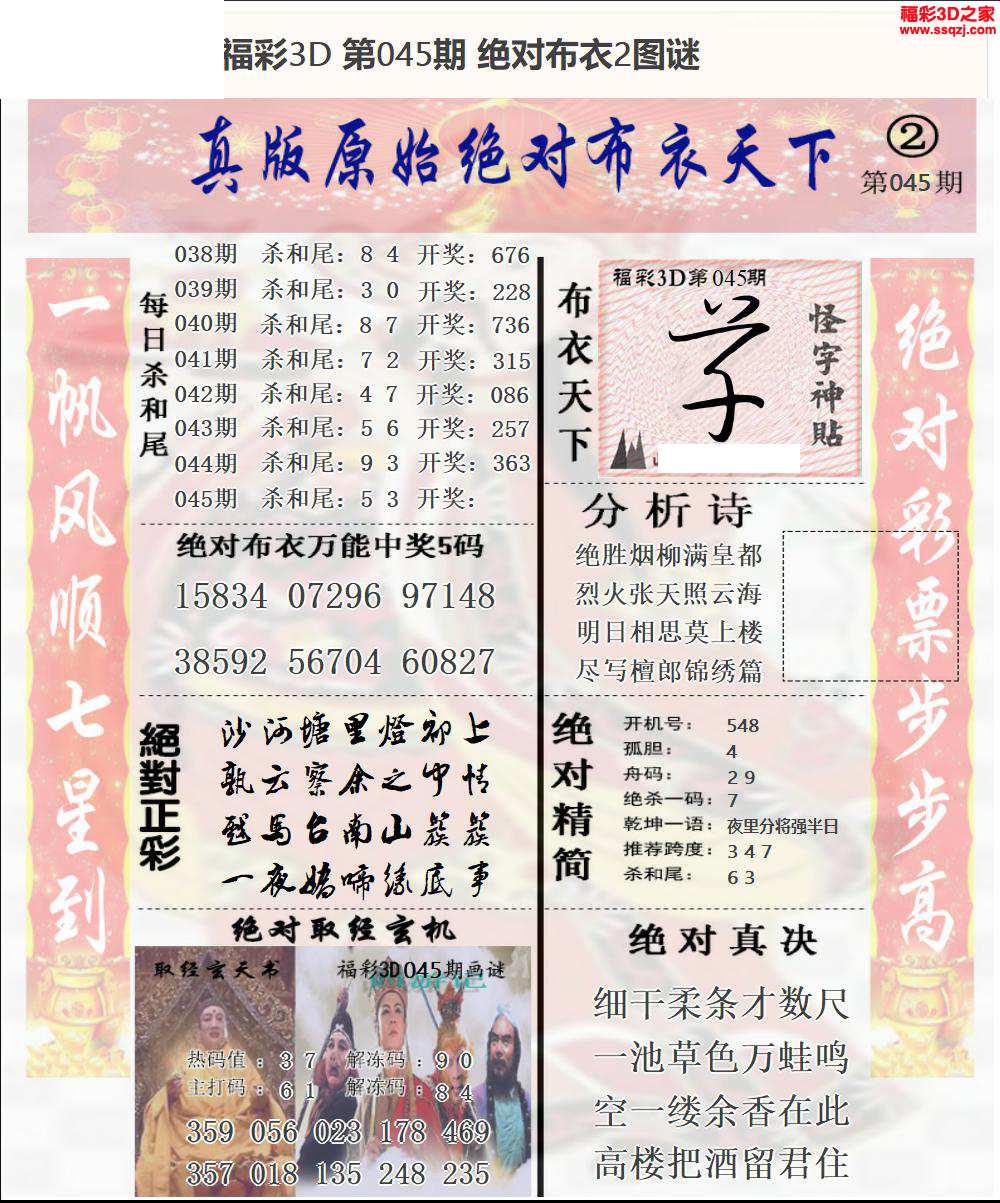 福彩3D之家
www.ssqzj.com
福彩3D 第045期 绝对布衣2图谜
真版原始绝对布衣天下
②
第045期
一帆风顺七星到
每日杀和尾
038期 杀和尾：8 4 开奖：676
039期 杀和尾：3 0 开奖：228
040期 杀和尾：8 7 开奖：736
041期 杀和尾：7 2 开奖：315
042期 杀和尾：4 7 开奖：086
043期 杀和尾：5 6 开奖：257
044期 杀和尾：9 3 开奖：363
045期 杀和尾：5 3 开奖：
绝对布衣万能中奖5码
15834 07296 97148
38592 56704 60827
絕對正彩
沙河塘里燈初上
孰云察余之中情
戏馬台南山簇簇
一夜嬌啼缘底事
绝对取经玄机
取经玄天书
福彩3D045期画谜
热码值：3 7 解冻码：9 0
主打码：6 1 解冻码：8 4
359 056 023 178 469
357 018 135 248 235
布衣天下
福彩3D第045期
怪字神貼
分析诗
绝胜烟柳满皇都
烈火张天照云海
明日相思莫上楼
尽写檀郎锦绣篇
绝对精简
开机号：548
孤胆：4
舟码：2 9
绝杀一码：7
乾坤一语：夜里分将强半日
推荐跨度：3 4 7
杀和尾：6 3
绝对真决
细干柔条才数尺
一池草色万蛙鸣
空一缕余香在此
高楼把酒留君住
绝对彩票步步高